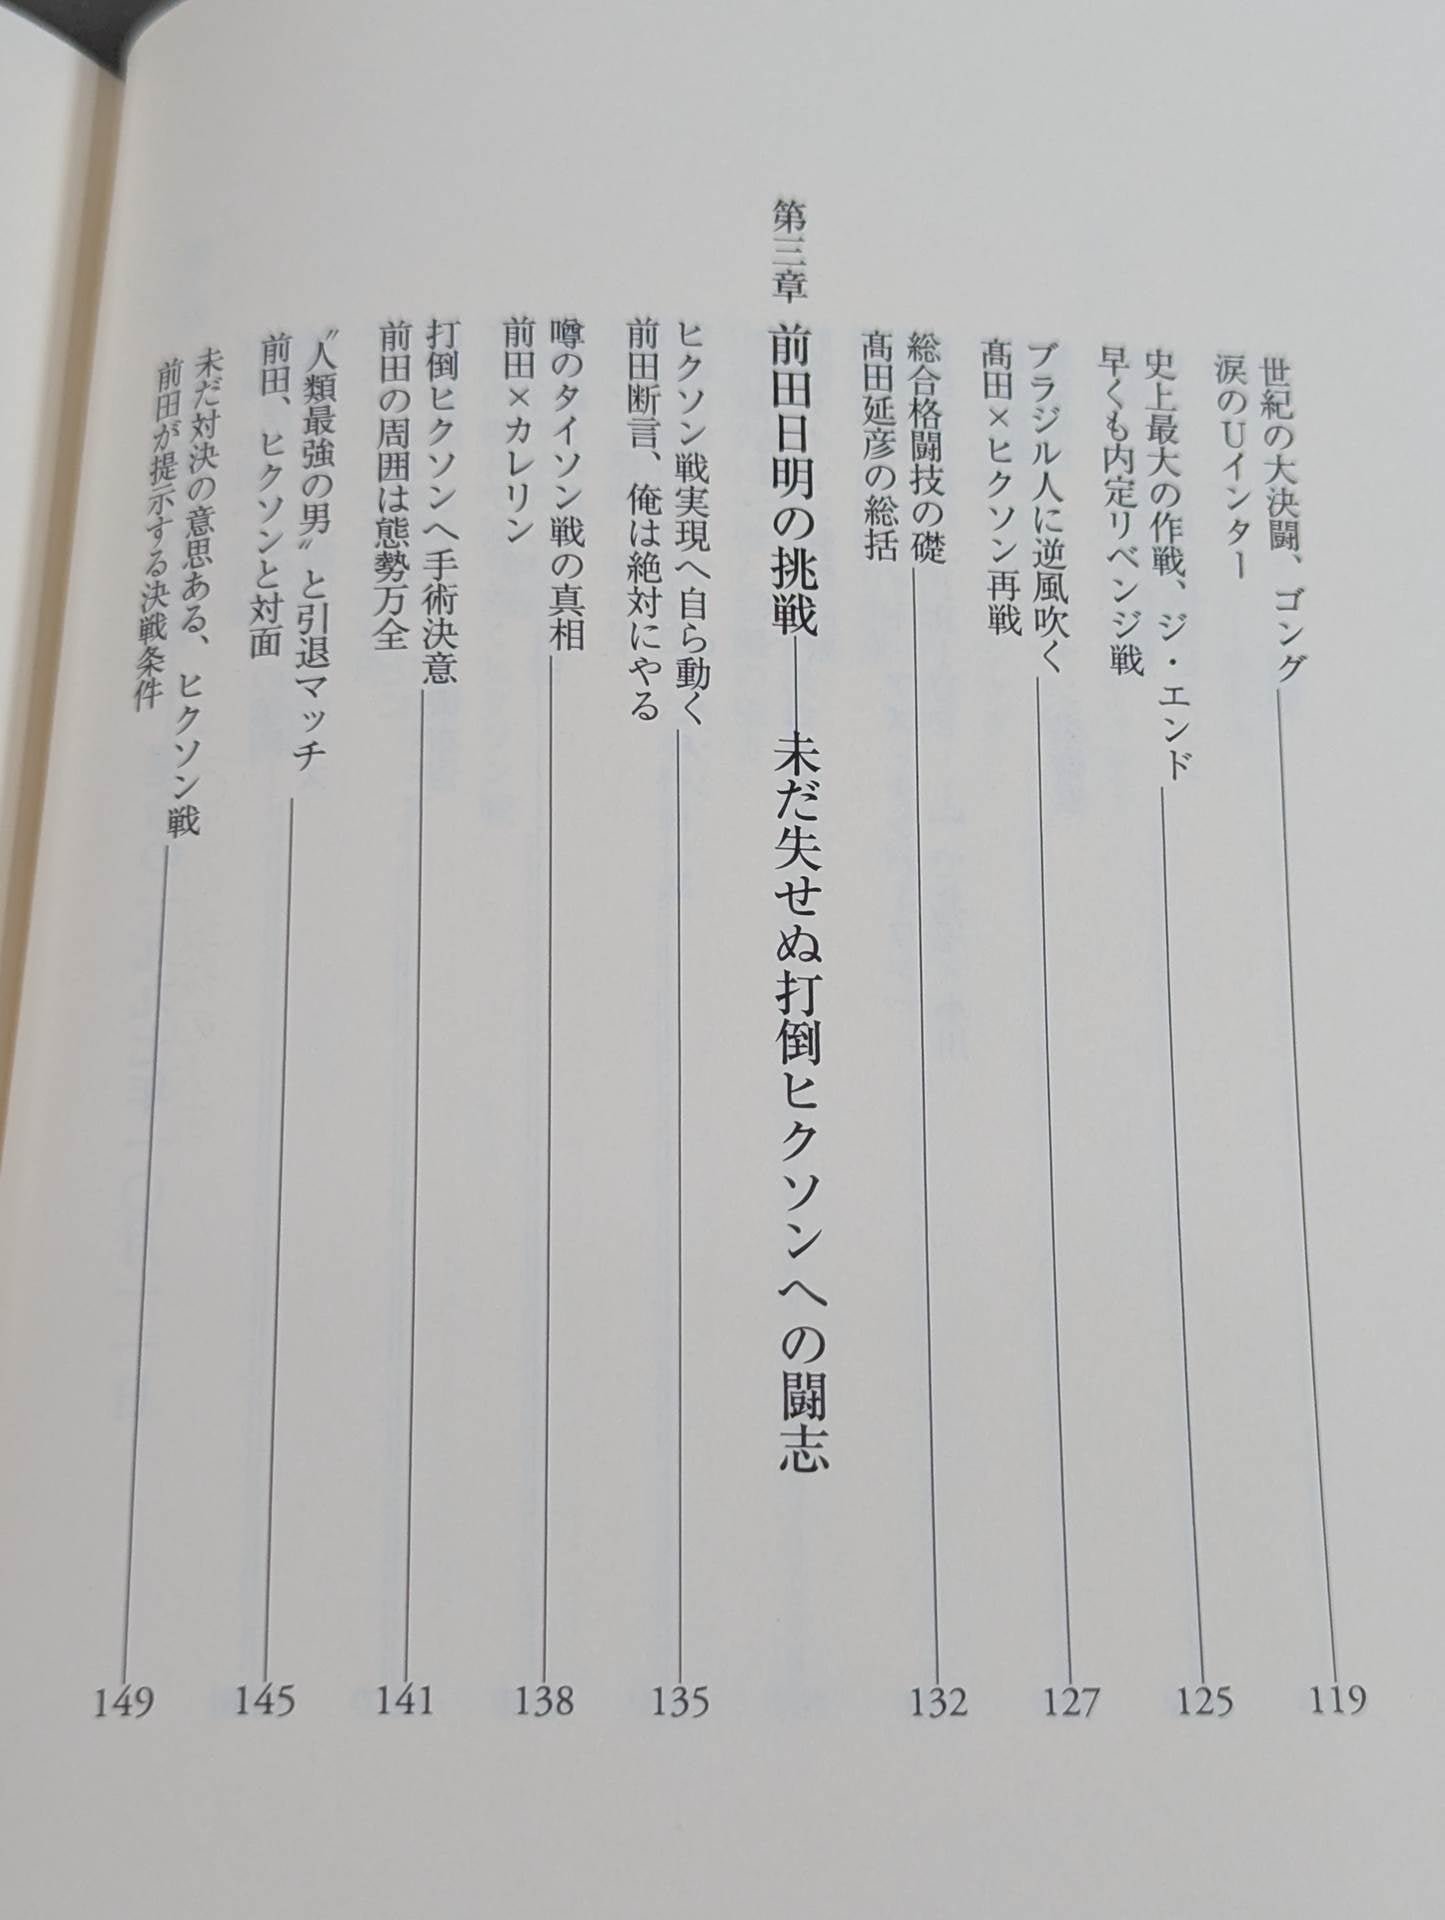 世紀の大決闘、ゴング
涙のUインター
119
史上最大の作戦、ジ・エンド
早くも内定リベンジ戦
125
ブラジル人に逆風吹く
髙田×ヒクソン再戦
127
総合格闘技の礎
髙田延彦の総括
132
第三章 前田日明の挑戦――未だ失せぬ打倒ヒクソンへの闘志
ヒクソン戦実現へ自ら動く
前田断言、俺は絶対にやる
135
噂のタイソン戦の真相
前田×カレリン
138
打倒ヒクソンへ手術決意
前田の周囲は態勢万全
141
〝人類最強の男〟と引退マッチ
前田、ヒクソンと対面
145
未だ対決の意思ある、ヒクソン戦
前田が提示する決戦条件
149